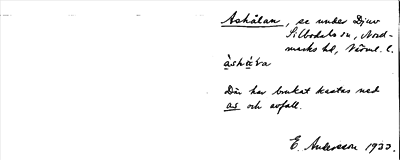 Ashålan, se under Djuv
Silbodals sn, Nord-
marks hd, Värml. l.
àshå̀ła
Där har brukat kastas ned
as och avfall.
E. Andersson 1933.